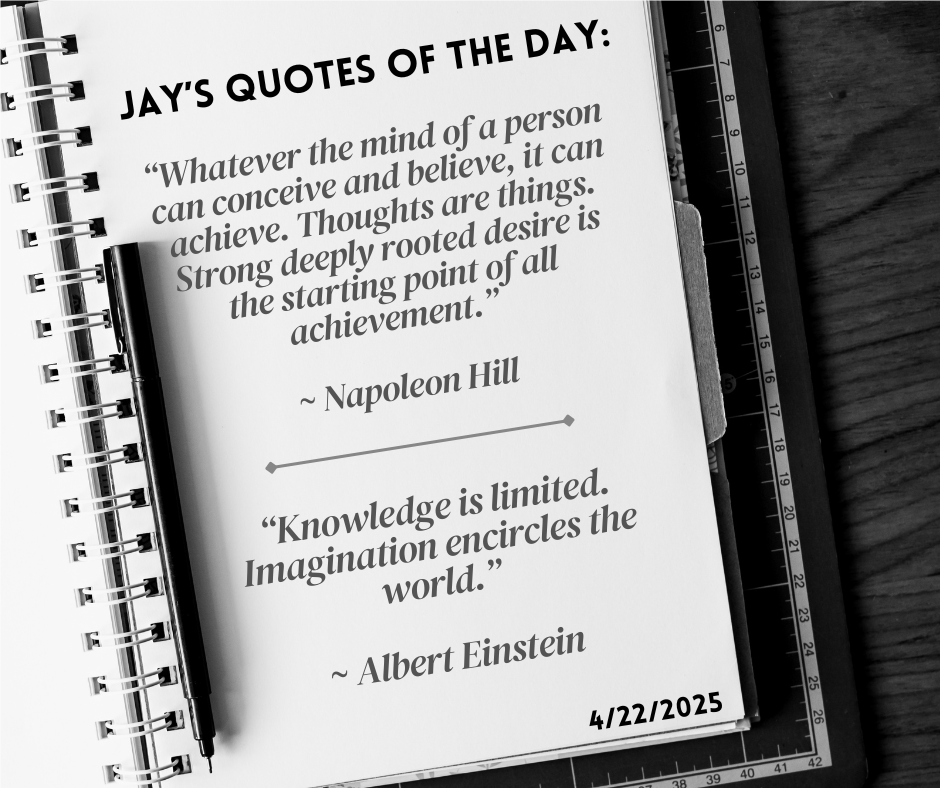 JAY'S QUOTES OF THE DAY:
“Whatever the mind of a person
can conceive and believe, it can
achieve. Thoughts are things.
Strong deeply rooted desire is
the starting point of all
achievement.”
~ Napoleon Hill
“Knowledge is limited.
Imagination encircles the
world.”
~ Albert Einstein
4/22/2025
6
7
8
9
10
11
12
13
14
15
16
17
18
19
20
21
22
23
24
25
26
38
39
40
41
42